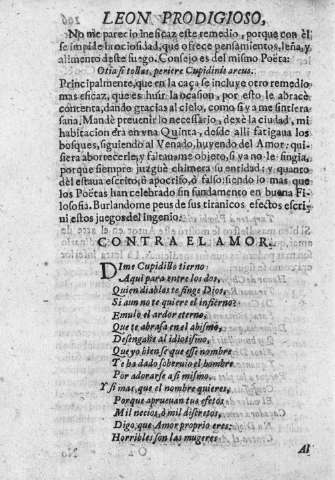 LEON PRODIGIOSO,
No me parecio ineficaz este remedio, porque con èl
se impide la ociosidad, que ofrece pensamientos, leña, y
alimento deste fuego. Consejo es del mismo Poëta:
Otia si tollas, periere Cupidinis arcus.
Principalmente, que en la caça se incluye otro remedio
mas eficaz, que es huir la ocasion, por esto le abracè
contenta, dando gracias al cielo, como si ya me sintiera
sana. Mandè prevenir lo necessario, dexè la ciudad, mi
habitacion era en vna Quinta, desde alli fatigaua los
bosques, siguiendo al Venado, huyendo del Amor: qui-
siera aborrecerle, y faltauame objeto, si ya no le fingia,
porque siempre juzguè chimera su entidad: y quanto
dèl estaua escrito, ò apocrifo, ò falso: siendo lo mas que
los Poëtas han celebrado sin fundamento en buena Fi-
losofia. Burlandome pues de sus tiranicos efectos escri-
ui estos juegos del ingenio.
CONTRA EL AMOR.
DIme Cupidillo tierno
Aqui para entre los dos,
Quien diablos te finge Dios,
Si aun no te quiere el infierno?
Emulo el ardor eterno,
Que te abrasa en el abismo,
Desengañe al idiotismo,
Que yo bien se que esse nombre
Te ha dado soberuio el hombre
Por adorarse a si mismo.
Y si mas, que el nombre quieres,
Porque aprueuan tus efetos
Mil necios, ò mil discretos,
Digo, que Amor proprio eres:
Horribles son las mugeres
Al